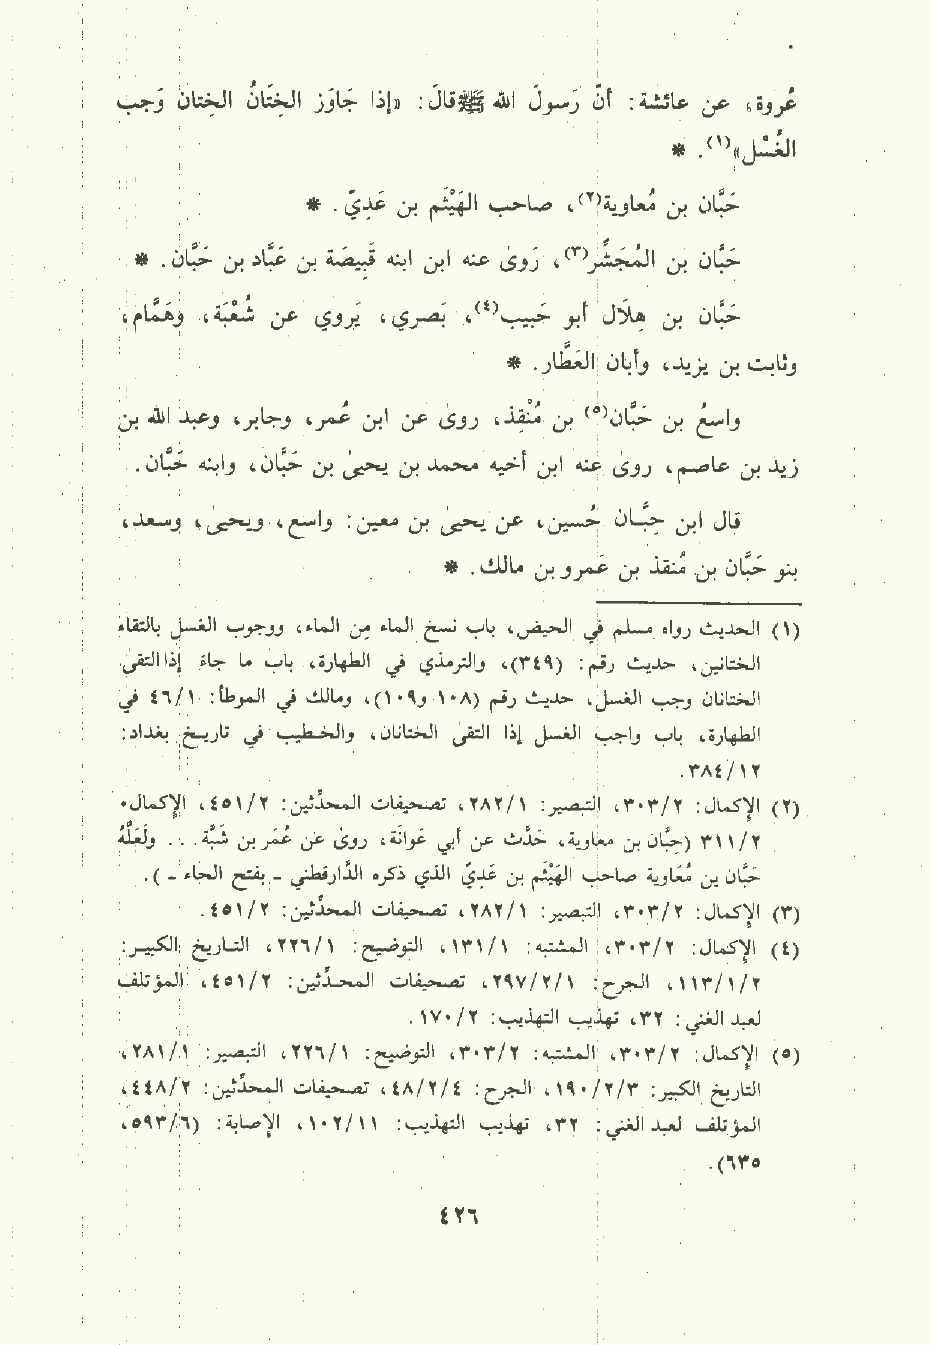 عُروة، عن عائشة: أنّ رَسولَ الله ﷺ قالَ: «إذا جَاوَز الخِتَانُ الخِتانَ وَجب
الغُسْل»(١). *
حَبَّان بن مُعاوية(٢)، صاحب الهَيْثَم بن عَدِيّ. *
حَبَّان بن المُجَشِّر(٣)، رَوىٰ عنه ابن ابنه قَبِيصَة بن عَبَّاد بن حَبَّان. *
حَبَّان بن هِلَال أبو حَبيب(٤)، بَصري، يَروي عن شُعْبَة، وهَمَّام،
وثابت بن يزيد، وأبان العَطَّار. *
واسعُ بن حَبَّان(٥) بن مُنْقِذ، روىٰ عن ابن عُمر، وجابر، وعبد الله بن
زيد بن عاصم، روىٰ عنه ابن أخيه محمد بن يحيىٰ بن حَبَّان، وابنه حَبَّان.
قال ابن حِبَّان حُسين، عن يحيىٰ بن معين: واسع، ويحيىٰ، وسعد،
بنو حَبَّان بن مُنقذ بن عَمرو بن مالك. *
(١) الحديث رواه مسلم في الحيض، باب نسخ الماء من الماء، ووجوب الغسل بالتقاء
الختانين، حديث رقم: (٣٤٩)، والترمذي في الطهارة، باب ما جاء إذا التقى
الختانان وجب الغسل، حديث رقم (١٠٨ و١٠٩)، ومالك في الموطأ: ٤٦/١ في
الطهارة، باب واجب الغسل إذا التقى الختانان، والخطيب في تاريخ بغداد:
٣٨٤/١٢.
(٢) الإكمال: ٣٠٣/٢، التبصير: ٢٨٢/١، تصحيفات المحدِّثين: ٤٥١/٢، الإكمال
٣١١/٢ (حبَّان بن معاوية، حَدَّث عن أبي عَوانَة، روىٰ عن عُمَر بن شَبَّة. . . ولَعَلَّهُ
حَبَّان بن مُعَاوية صاحب الهَيْثَم بن عَدِيّ الذي ذكره الدَّارقطني - بفتح الحاء - ).
(٣) الإكمال: ٣٠٣/٢، التبصير: ٢٨٢/١، تصحيفات المحدِّثين: ٤٥١/٢.
(٤) الإكمال: ٣٠٣/٢، المشتبه: ١٣١/١، التوضيح: ٢٢٦/١، التاريخ الكبير:
١١٣/١/٢، الجرح: ٢٩٧/٢/١، تصحيفات المحدِّثين: ٤٥١/٢، المؤتلف
لعبد الغني: ٣٢، تهذيب التهذيب: ١٧٠/٢.
(٥) الإكمال: ٣٠٣/٢، المشتبه: ٣٠٣/٢، التوضيح: ٢٢٦/١، التبصير: ٢٨١/١،
التاريخ الكبير: ١٩٠/٢/٣، الجرح: ٤٨/٢/٤، تصحيفات المحدِّثين: ٤٤٨/٢،
المؤتلف لعبد الغني: ٣٢، تهذيب التهذيب: ١٠٢/١١، الإصابة: (٥٩٣/٦،
٦٣٥).
٤٢٦